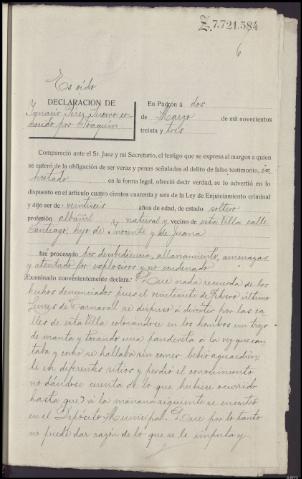 Z.7.721.384
6
Es oido
DECLARACIÓN DE
Ignacio
por Joaquin
En Padrón a dos
de Marzo de mil novecientos
treinta y tres
Compareció ante el Sr. Juez y mi Secretario, el testigo que se expresa al margen a quien
se enteró de la obligación de ser veraz y penas señaladas al delito de falso testimonio,
en la forma legal, ofreció decir verdad, se le advertió en lo
dispuesto en el artículo cuatro cientos cuarenta y seis de la Ley de Enjuiciamiento criminal
y dijo ser de veintiseis años de edad, de estado soltero
profesión albañil y natural y vecino de esta Villa calle
Santiago, hijo de Vicente y de Juana
fué procesado por desobediencia, allanamiento, amenazas
y atentado por explosivos y no condenado
Examinado convenientemente declara: Que nada recuerda de los
hechos denunciados pues el veintisiete de Febrero último
Lunes de Carnaval se dispuso a divertir por las ca-
lles de esta Villa colocandose en los hombros un trozo
de manta y tocando una pandereta a la vez que can-
taba y como se hallaba sin comer bebio aguardien-
te en diferentes sitios y perdió el conocimiento
no dándose cuenta de lo que hubiese ocurrido
hasta que a la mañana siguiente se encontró
en el Depósito Municipal. Que por lo tanto
no puede dar razón de lo que se le imputa y